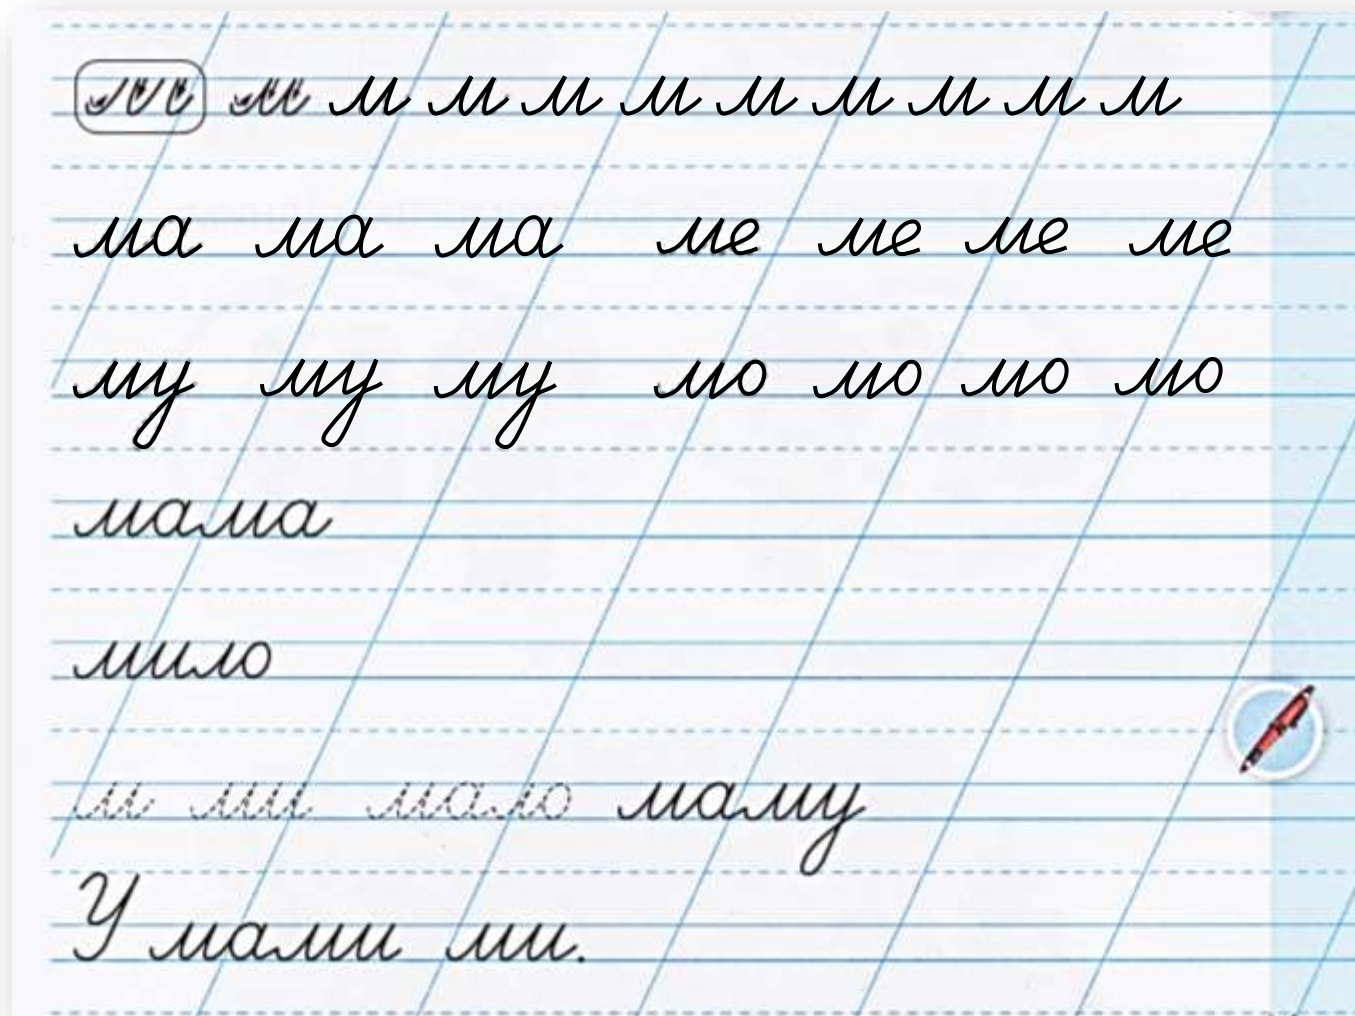 м м м м м м м м м м
ма ма ма ме ме ме ме
му му му мо мо мо мо
мама
мило
м ми мало маму
У мами ми.